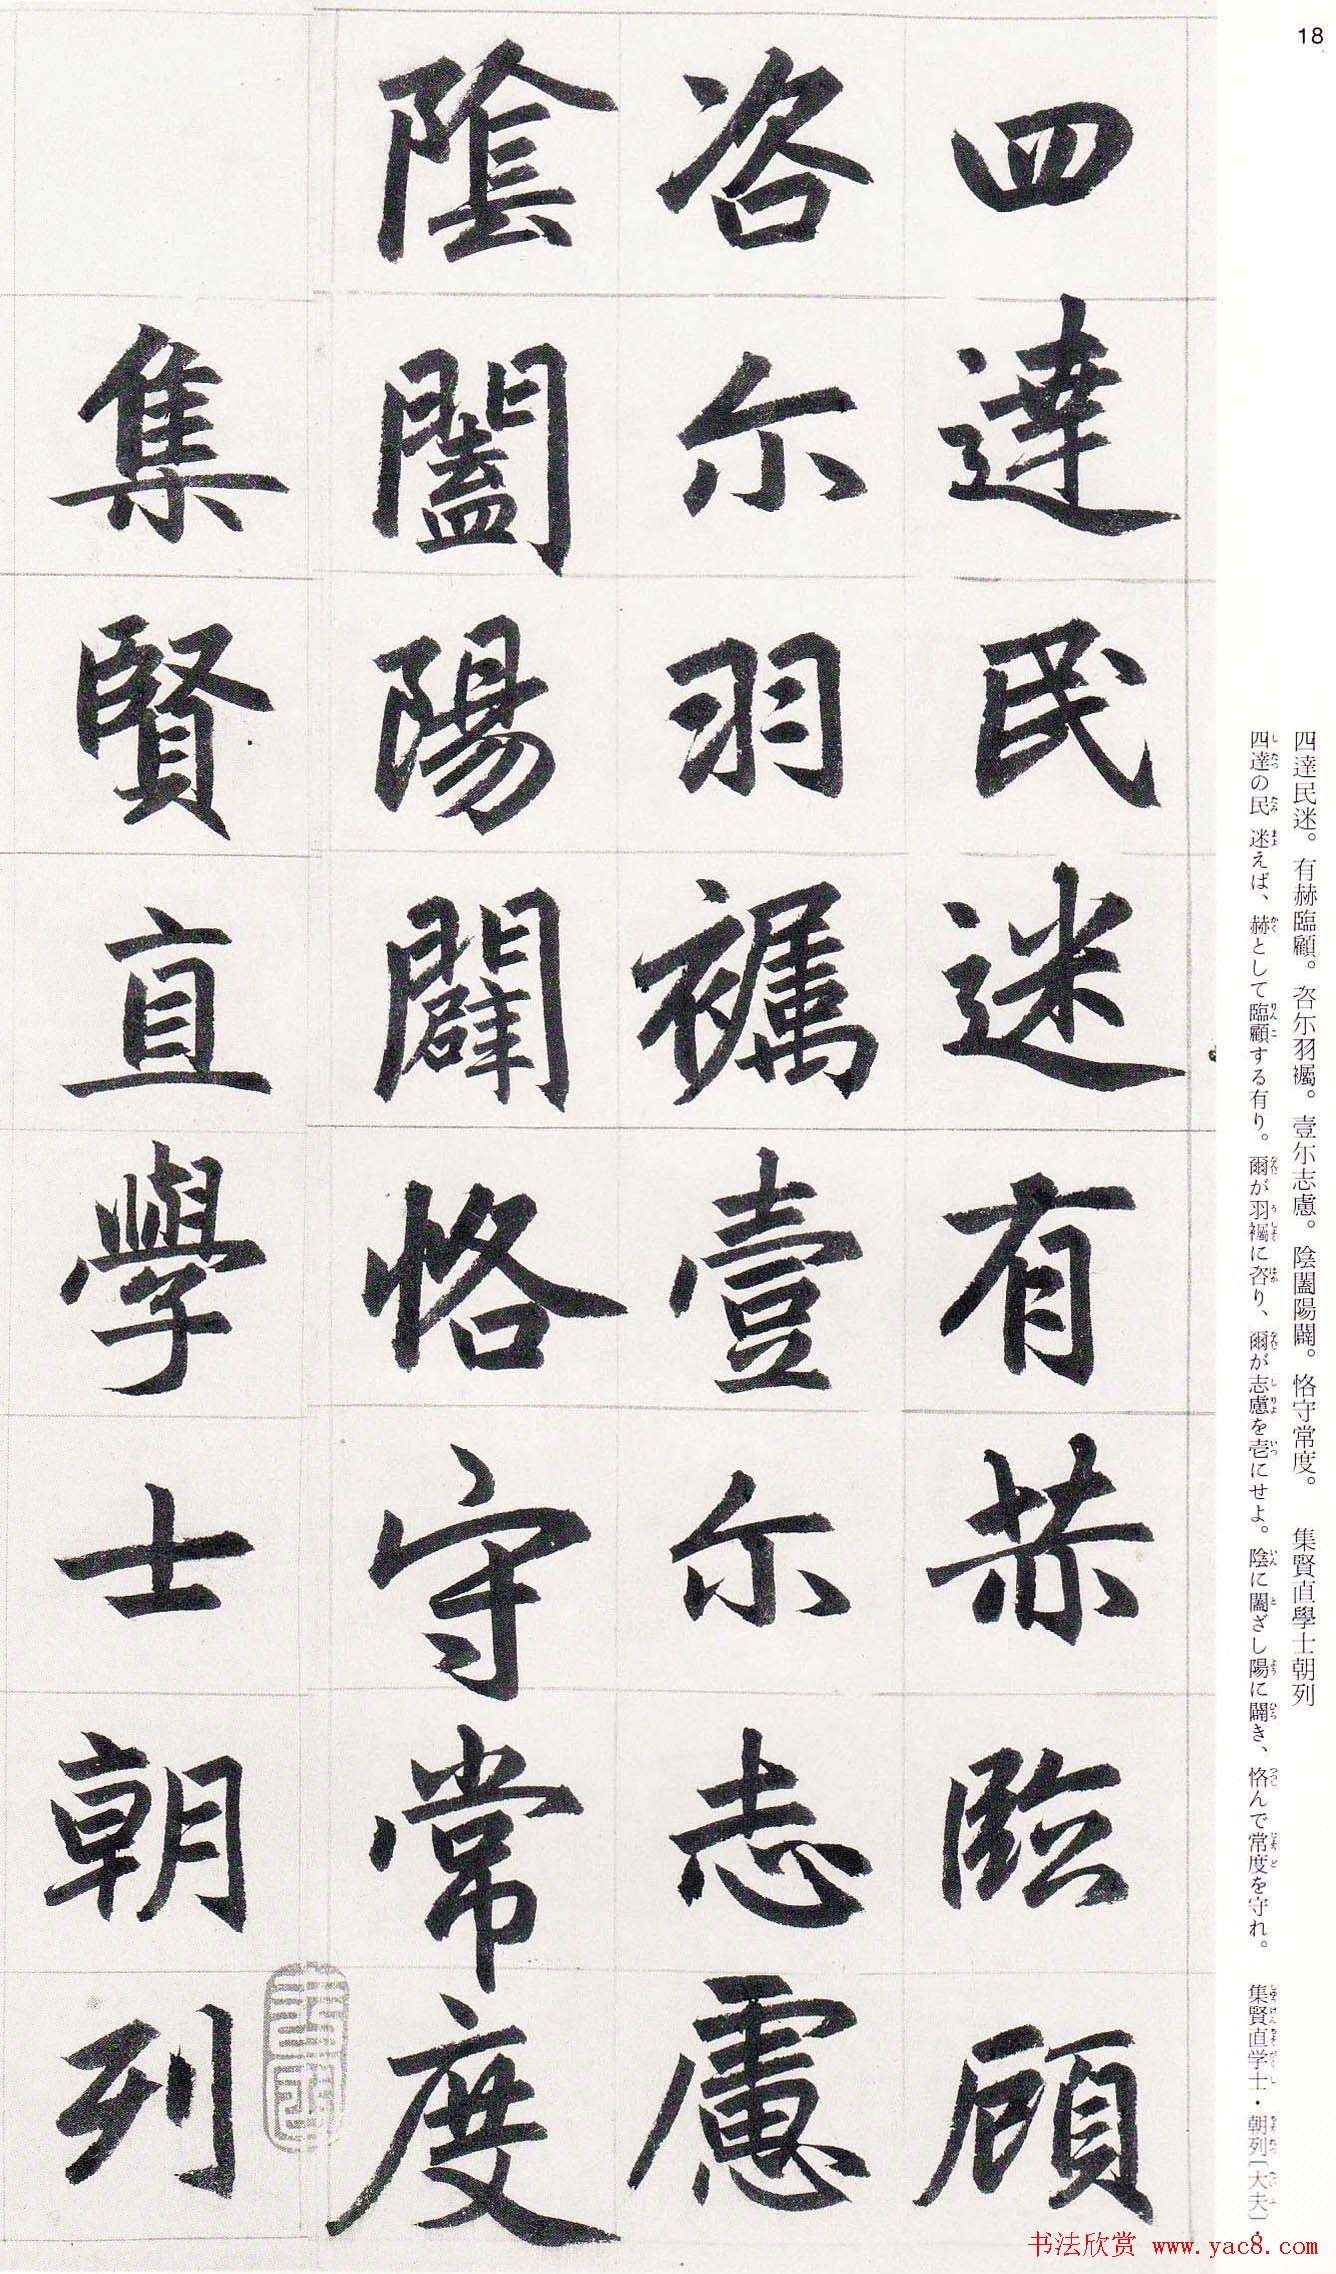 18
四達民迷。有赫臨顧。咨尓羽襡。壹尓志慮。陰闔陽闢。恪守常度。 集賢直學士朝列
四達の民 迷えば、赫として臨顧する有り。爾が羽襡に咨り、爾が志慮を壱にせよ。陰に闔ざし陽に闢き、恪んで常度を守れ。 集賢直学士・朝列〔大夫〕・
四達民迷有赫臨顧
咨尓羽襡壹尓志慮
陰闔陽闢恪守常度
集賢直學士朝列
书法欣赏 www.yac8.com